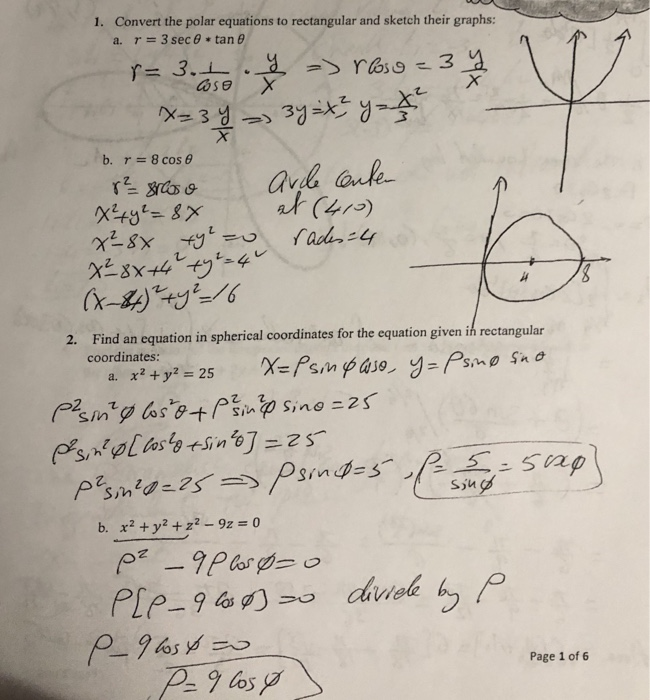 1. Convert the polar equations to rectangular and sketch their graphs:
a. r = 3 sec θ * tan θ
r = 3 · 1/cosθ · y/x => r cosθ = 3 y/x
x = 3 y/x => 3y = x², y = x²/3
b. r = 8 cos θ
r² = 8r cos θ
x² + y² = 8x
x² - 8x + y² = 0
x² - 8x + 4² + y² = 4²
(x - 4)² + y² = 16
at (4,0)
4
8
2. Find an equation in spherical coordinates for the equation given in rectangular
coordinates:
a. x² + y² = 25
x = ρ sin φ cos θ, y = ρ sin φ sin θ
ρ² sin² φ cos² θ + ρ² sin² φ sin θ = 25
ρ² sin² φ [cos² θ + sin² θ] = 25
ρ² sin² φ = 25 => ρ sin φ = 5, ρ = 5/sin φ = 5 csc φ
b. x² + y² + z² – 9z = 0
ρ² - 9ρ cos φ = 0
ρ[ρ - 9 cos φ] = 0 divide by ρ
ρ - 9 cos φ = 0
ρ = 9 cos φ
Page 1 of 6